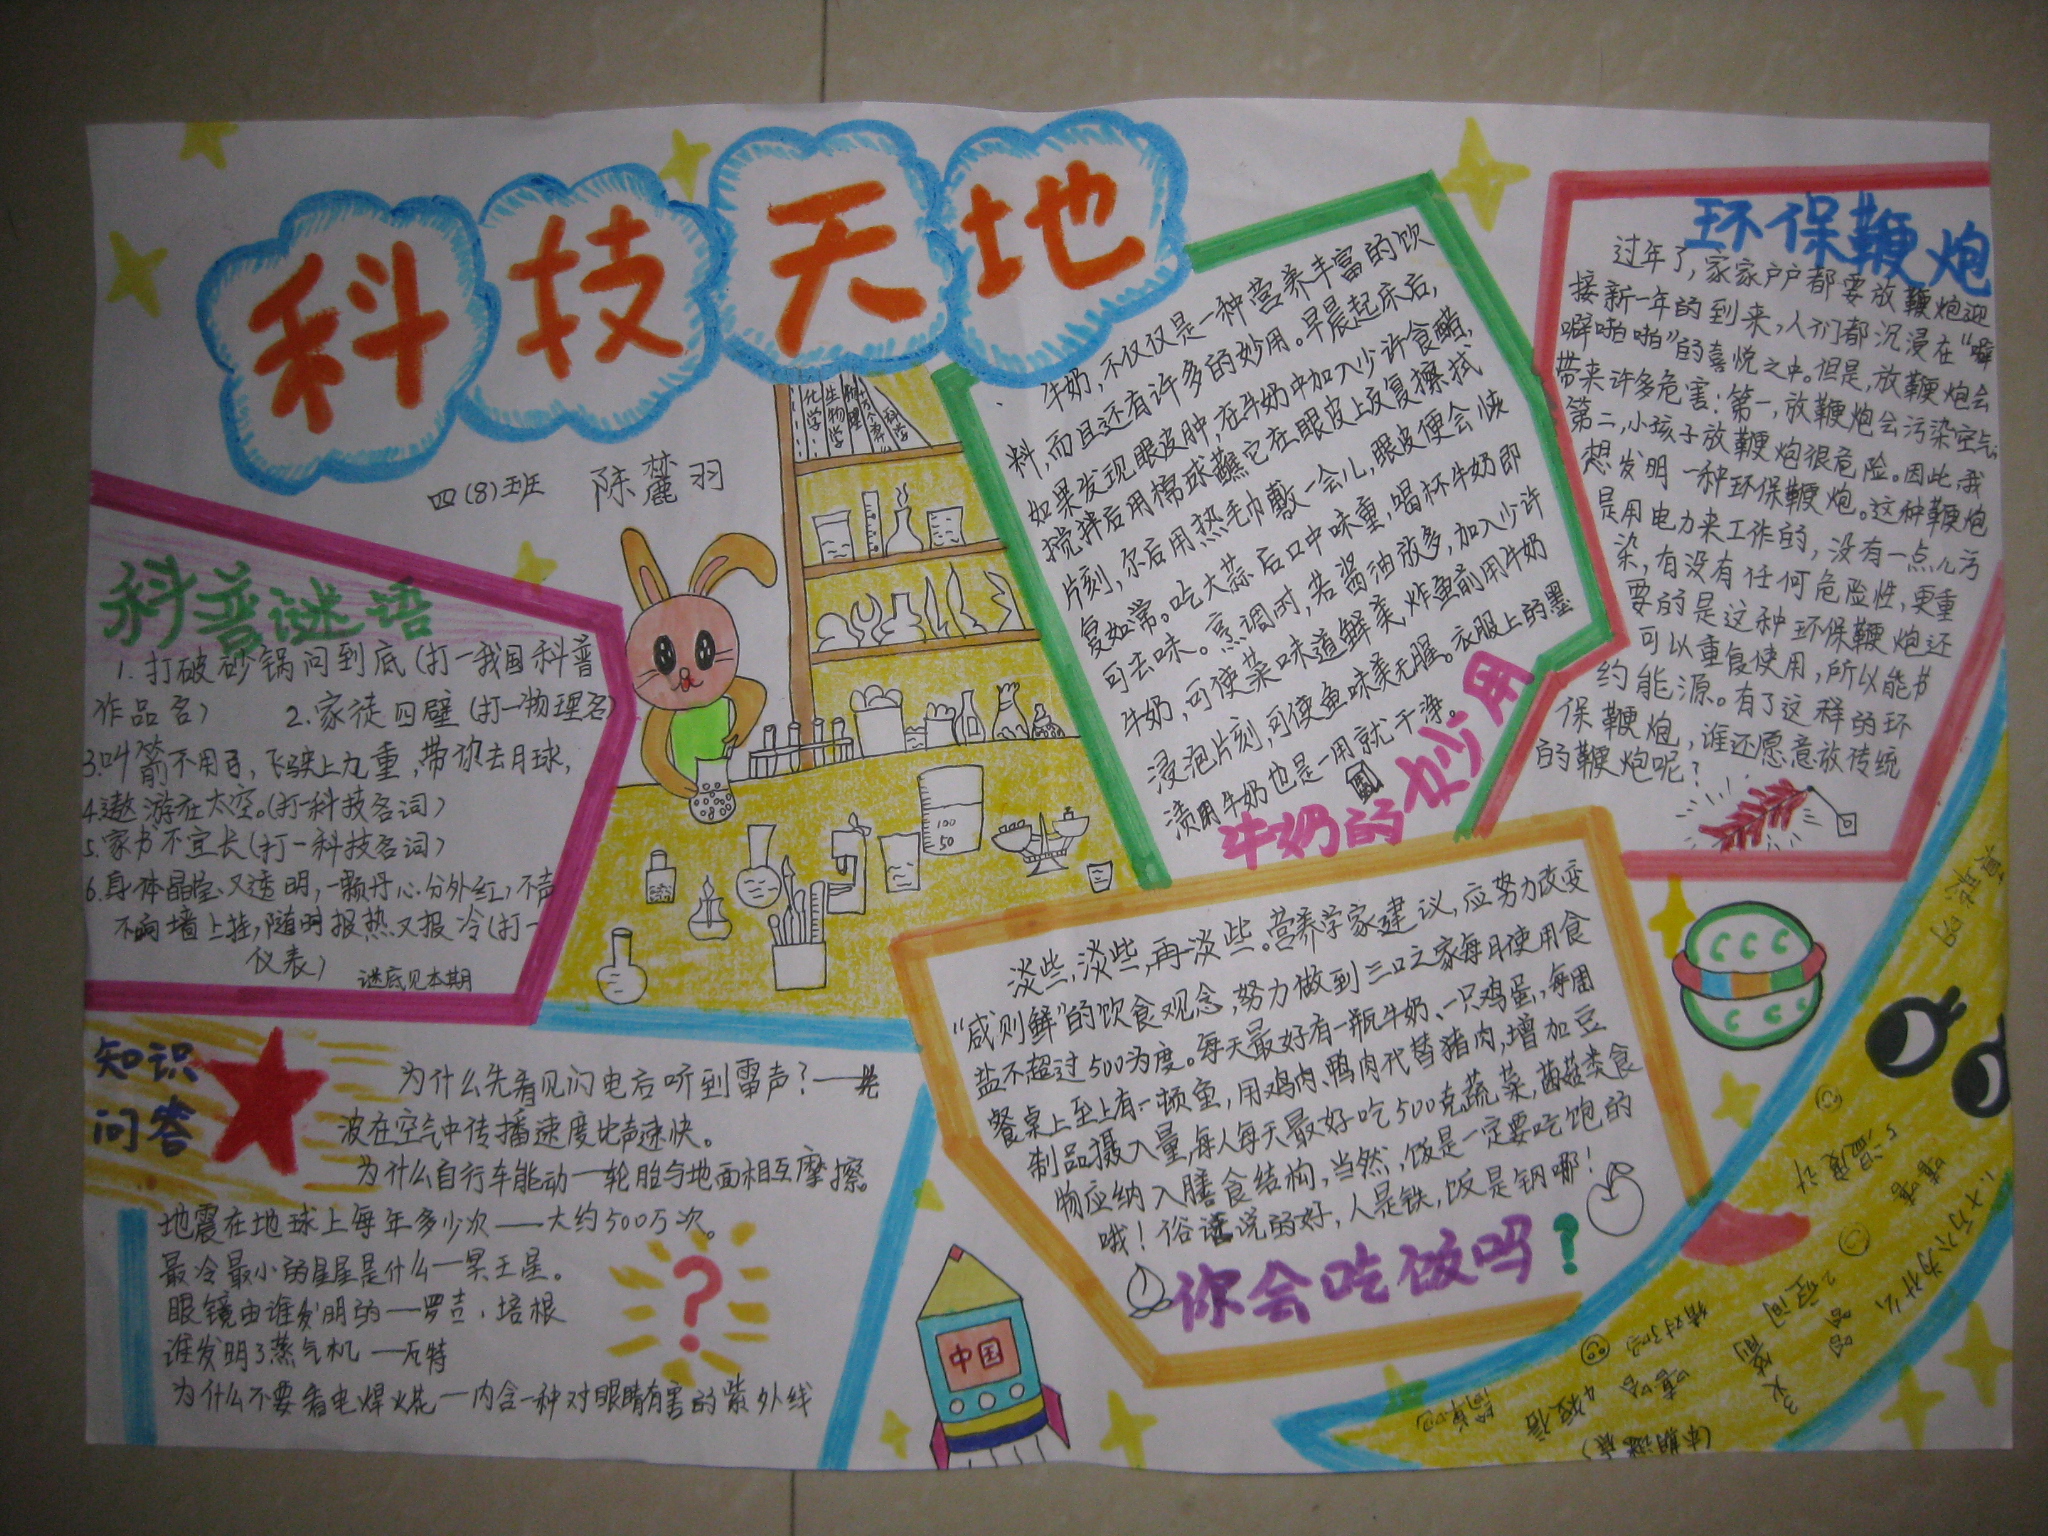 科技天地
四(8)班 陈麓羽
化学
生物学
物理
科学
科普谜语
1.打破砂锅问到底(打一我国科普
作品名) 2.家徒四壁(打一物理名)
3.叫箭不用弓,飞驶上九重,带你去月球,
4.遨游在太空。(打一科技名词)
5.家书不宜长(打一科技名词)
6.身体晶莹又透明,一颗丹心分外红,不声
不响墙上挂,随明报热又报冷(打一
仪表)
谜底见本期
知识
问答
为什么先看见闪电后听到雷声?——光
波在空气中传播速度比声速快。
为什么自行车能动—轮胎与地面相互摩擦。
地震在地球上每年多少次——大约500万次。
最冷最小的星星是什么—冥王星。
眼镜由谁发明的—罗吉,培根
谁发明了蒸气机—瓦特
为什么不要看电焊火花—内含一种对眼睛有害的紫外线
?
牛奶,不仅仅是一种营养丰富的饮
料,而且还有许多的妙用。早晨起床后,
如果发现眼皮肿,在牛奶中加入少许食醋,
搅拌后用棉球蘸它在眼皮上反复擦拭
片刻,尔后用热毛巾敷一会儿,眼皮便会恢
复如常。吃大蒜后口中味重,喝杯牛奶即
可去味。烹调时,若酱油放多,加入少许
牛奶,可使菜味道鲜美,炸鱼前用牛奶
浸泡片刻,可使鱼味美无腥。衣服上的墨
渍用牛奶也是一用就干净。
牛奶的妙用
环保鞭炮
过年了,家家户户都要放鞭炮迎
接新一年的到来,人们都沉浸在“噼
噼啪啪”的喜悦之中。但是,放鞭炮会
带来许多危害:第一,放鞭炮会污染空气;
第二,小孩子放鞭炮很危险。因此,我
想发明一种环保鞭炮。这种鞭炮
是用电力来工作的,没有一点儿污
染,有没有任何危险性,更重
要的是这种环保鞭炮还
可以重复使用,所以能节
约能源。有了这样的环
保鞭炮,谁还愿意放传统
的鞭炮呢?
淡些,淡些,再淡些。营养学家建议,应努力改变
“咸则鲜”的饮食观念,努力做到三口之家每月使用食
盐不超过500为度。每天最好有一瓶牛奶、一只鸡蛋,每周
餐桌上至上有一顿鱼,用鸡肉、鸭肉代替猪肉,增加豆
制品摄入量,每人每天最好吃500克蔬菜,菌菇类食
物应纳入膳食结构,当然,饭是一定要吃饱的
哦!俗话说的好,人是铁,饭是钢哪!
你会吃做吗?
中国
真聪明
1.十万个为什么
嘻嘻
5温度计
哈哈
2空间
3火箭
猜对了吗
嘻哈
4短信
(本期谜底)